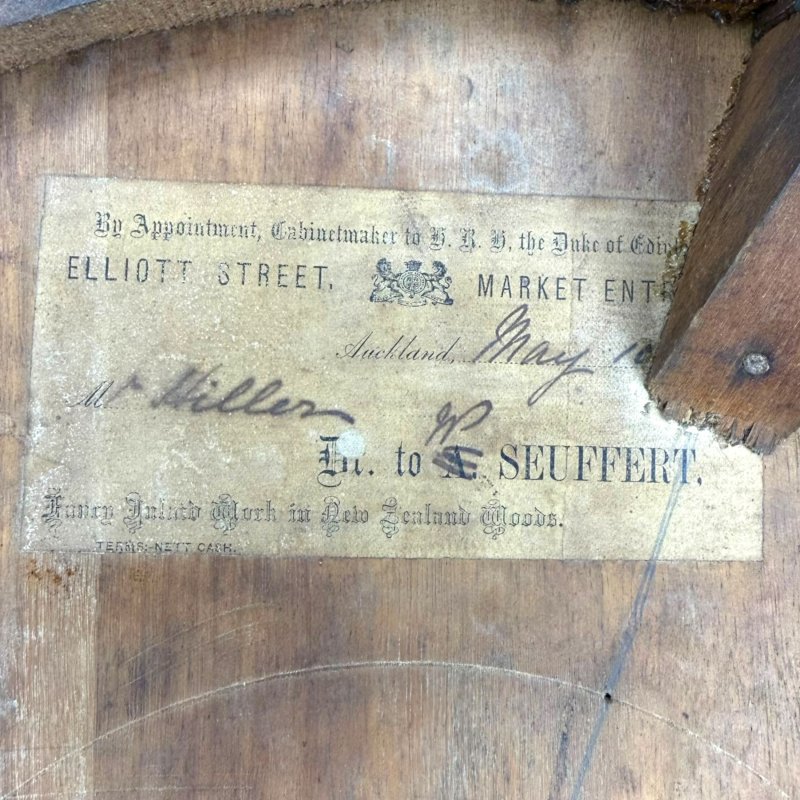 By Appointment, Cabinetmaker to H. R. H. the Duke of Edin
ELLIOTT STREET, MARKET ENT
Auckland, May 10
Mr Hiller
Dr. to W SEUFFERT,
Fancy Inlaid Work in New Zealand Woods.
TERMS: NETT CASH.